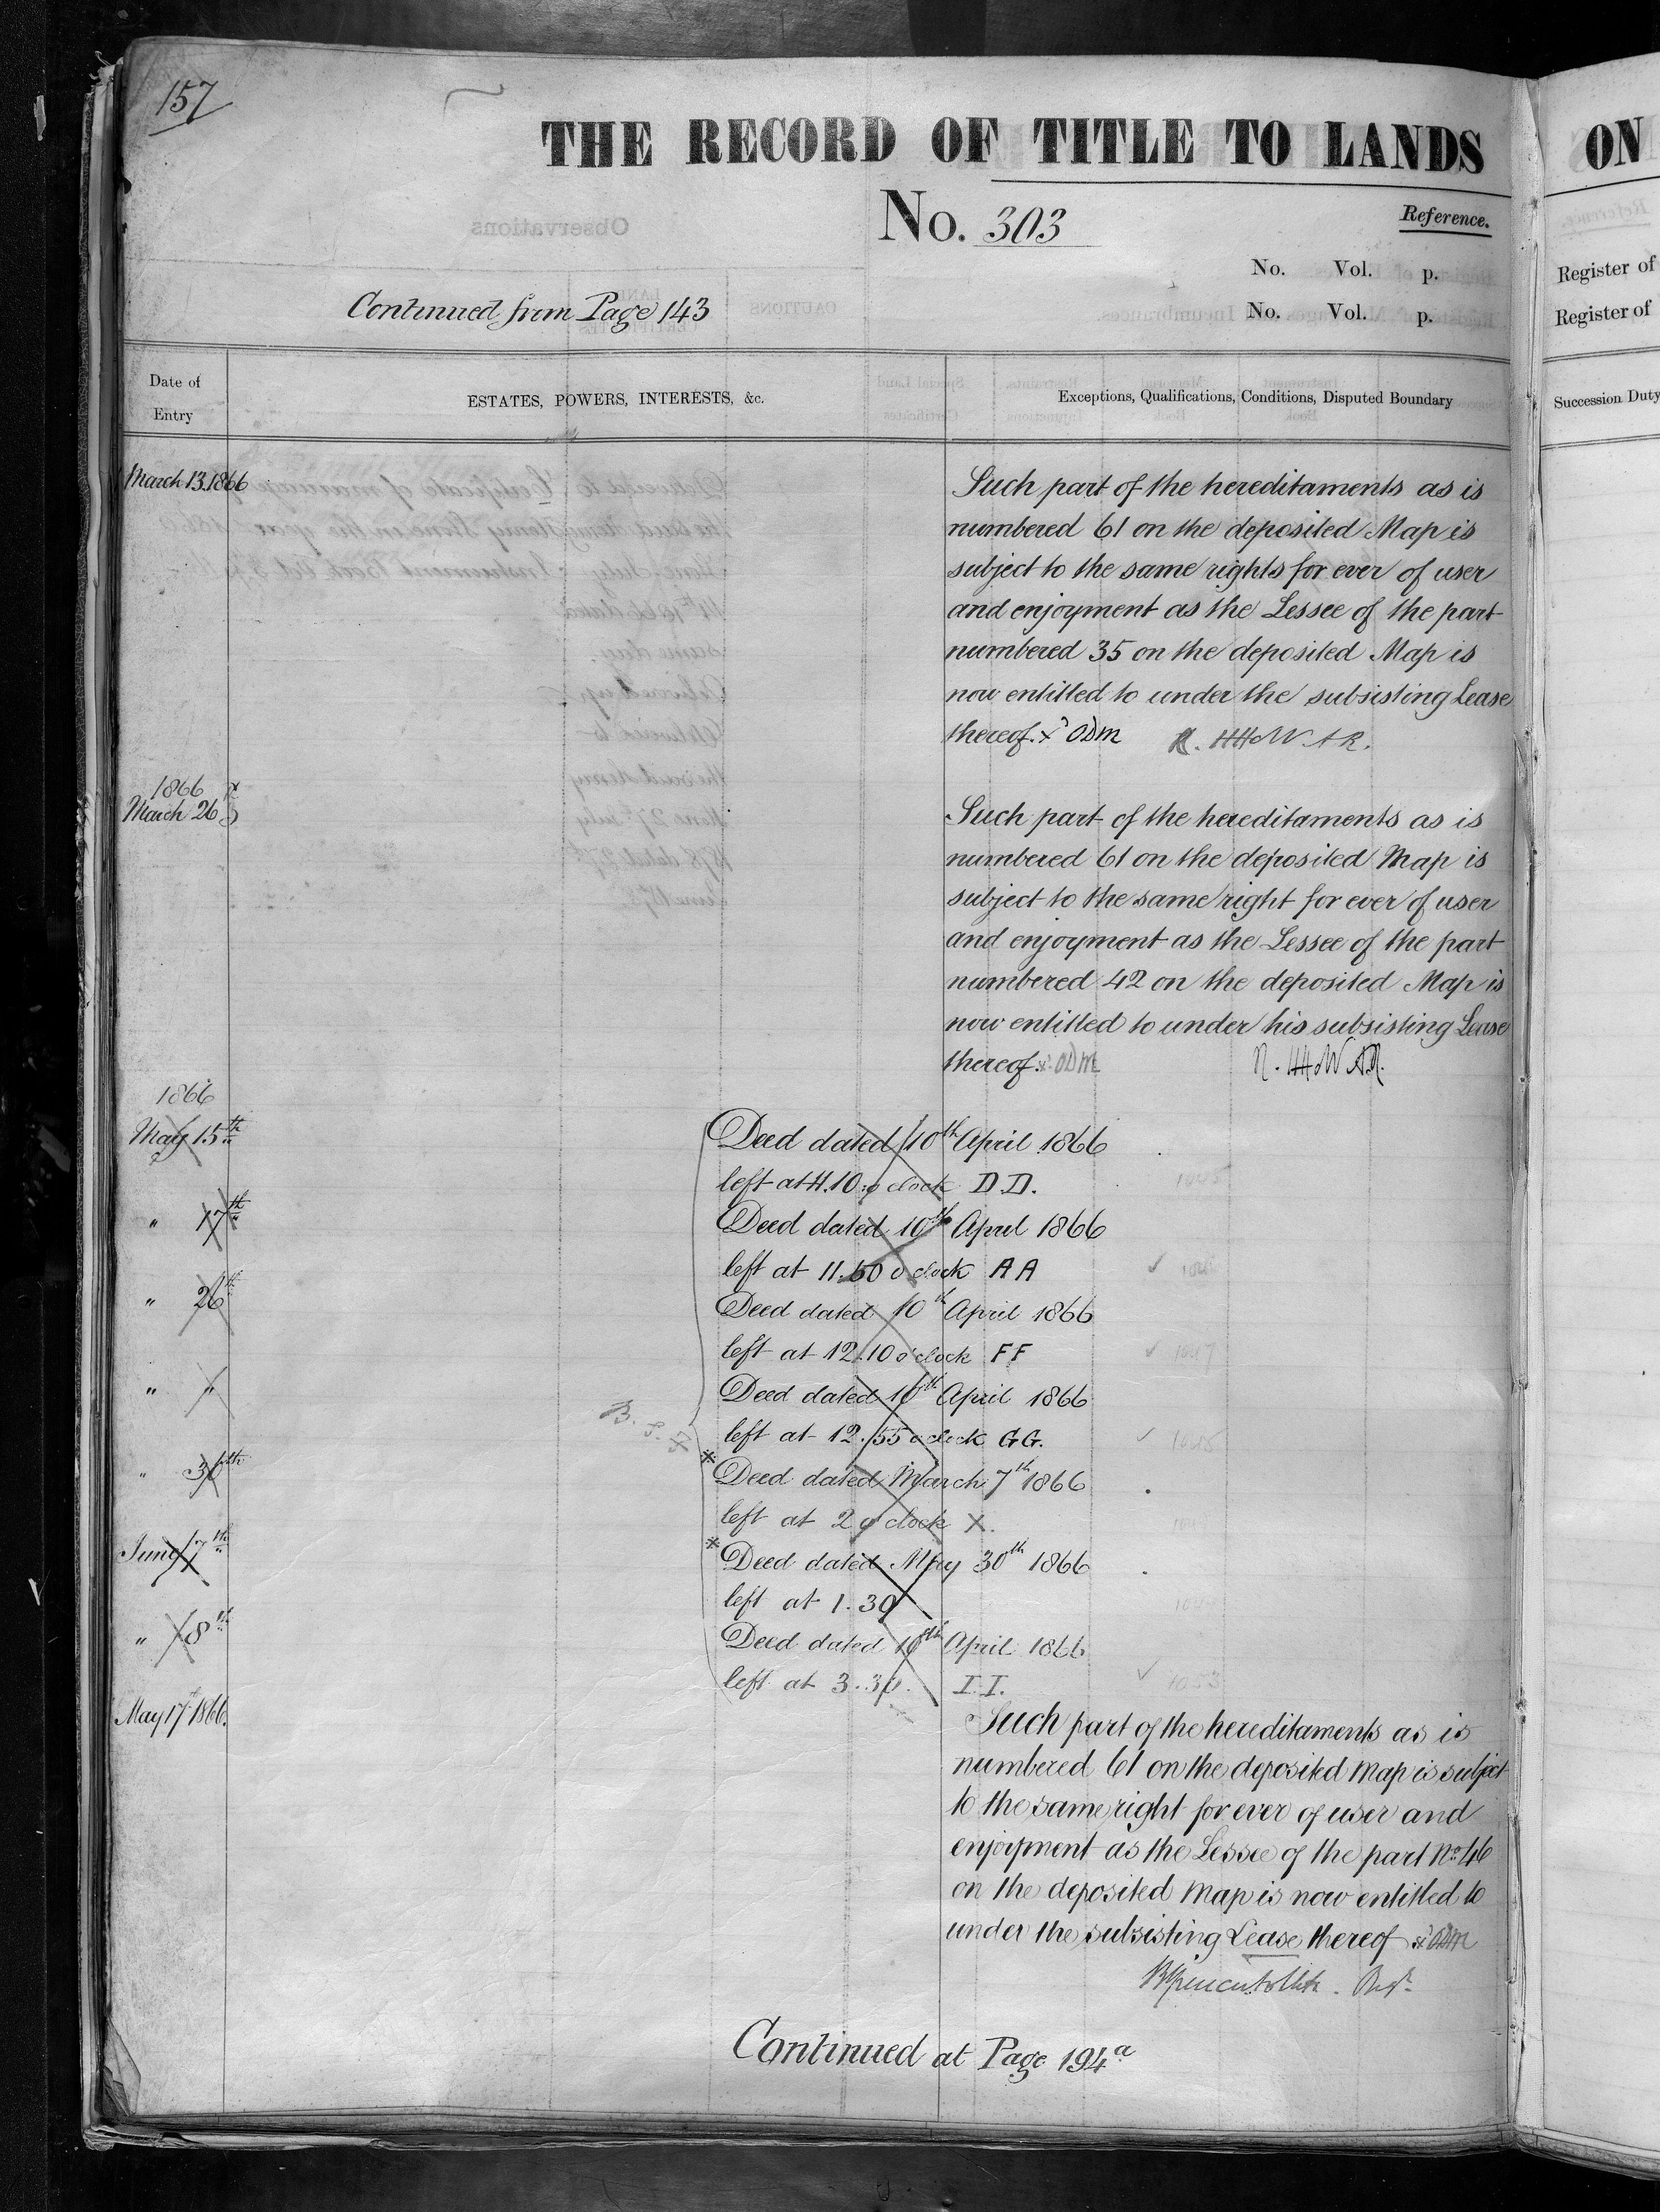 157
THE RECORD OF TITLE TO LANDS
No. 303
Reference.
No. Vol. p.
Continued from Page 143
No. Vol. p.
Date of Entry
ESTATES, POWERS, INTERESTS, &c.
Exceptions, Qualifications, Conditions, Disputed Boundary
March 13. 1866
Such part of the hereditaments as is
numbered 61 on the deposited Map is
subject to the same rights for ever of user
and enjoyment as the Lessee of the part
numbered 35 on the deposited Map is
now entitled to under the subsisting Lease
thereof. x ODM
1866
March 26
Such part of the hereditaments as is
numbered 61 on the deposited Map is
subject to the same right for ever of user
and enjoyment as the Lessee of the part
numbered 42 on the deposited Map is
now entitled to under his subsisting Lease
thereof. x ODM
1866
May 15th
Deed dated 10th April 1866
left at 4.10 o'clock D.D.
" 17th
Deed dated 10th April 1866
left at 11.50 o'clock A A
" 26th
Deed dated 10th April 1866
left at 12.10 o'clock F F
" "
Deed dated 10th April 1866
left at 12.55 o'clock GG.
" 30th
* Deed dated March 7th 1866
left at 2 o'clock X.
June 7th
* Deed dated May 30th 1866
left at 1.30
" 8th
Deed dated 10th April 1866
left at 3.30. I I.
May 17th 1866.
Such part of the hereditaments as is
numbered 61 on the deposited Map is subject
to the same right for ever of user and
enjoyment as the Lessee of the part No. 46
on the deposited Map is now entitled to
under the subsisting Lease thereof x ODM
Continued at Page 194a
ON
Register of
Register of
Succession Duty